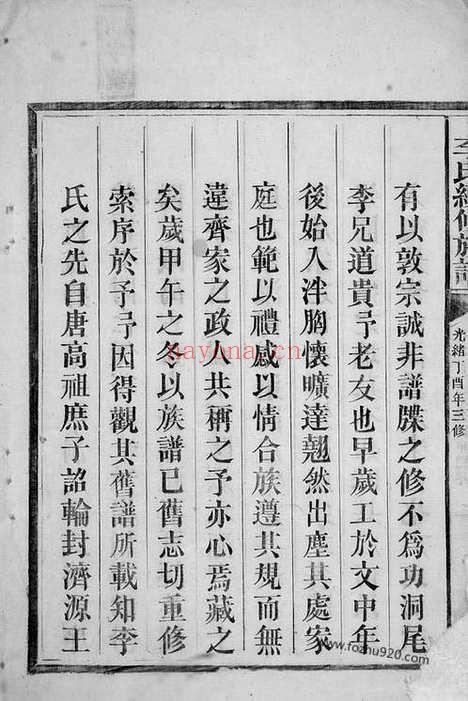 李氏續修族譜
光緒丁酉年三修
有以敦宗誠非譜牒之修不為功洞尾
李兄道貴予老友也早歲工於文中年
後始入泮胸懷曠達翹然出塵其處家
庭也範以禮感以情合族遵其規而無
違齊家之政人共稱之予亦心焉藏之
矣歲甲午之冬以族譜已舊志切重修
索序於予予因得觀其舊譜所載知李
氏之先自唐高祖庶子詔輪封濟源王
nayona.cn
www.fozhu920.com